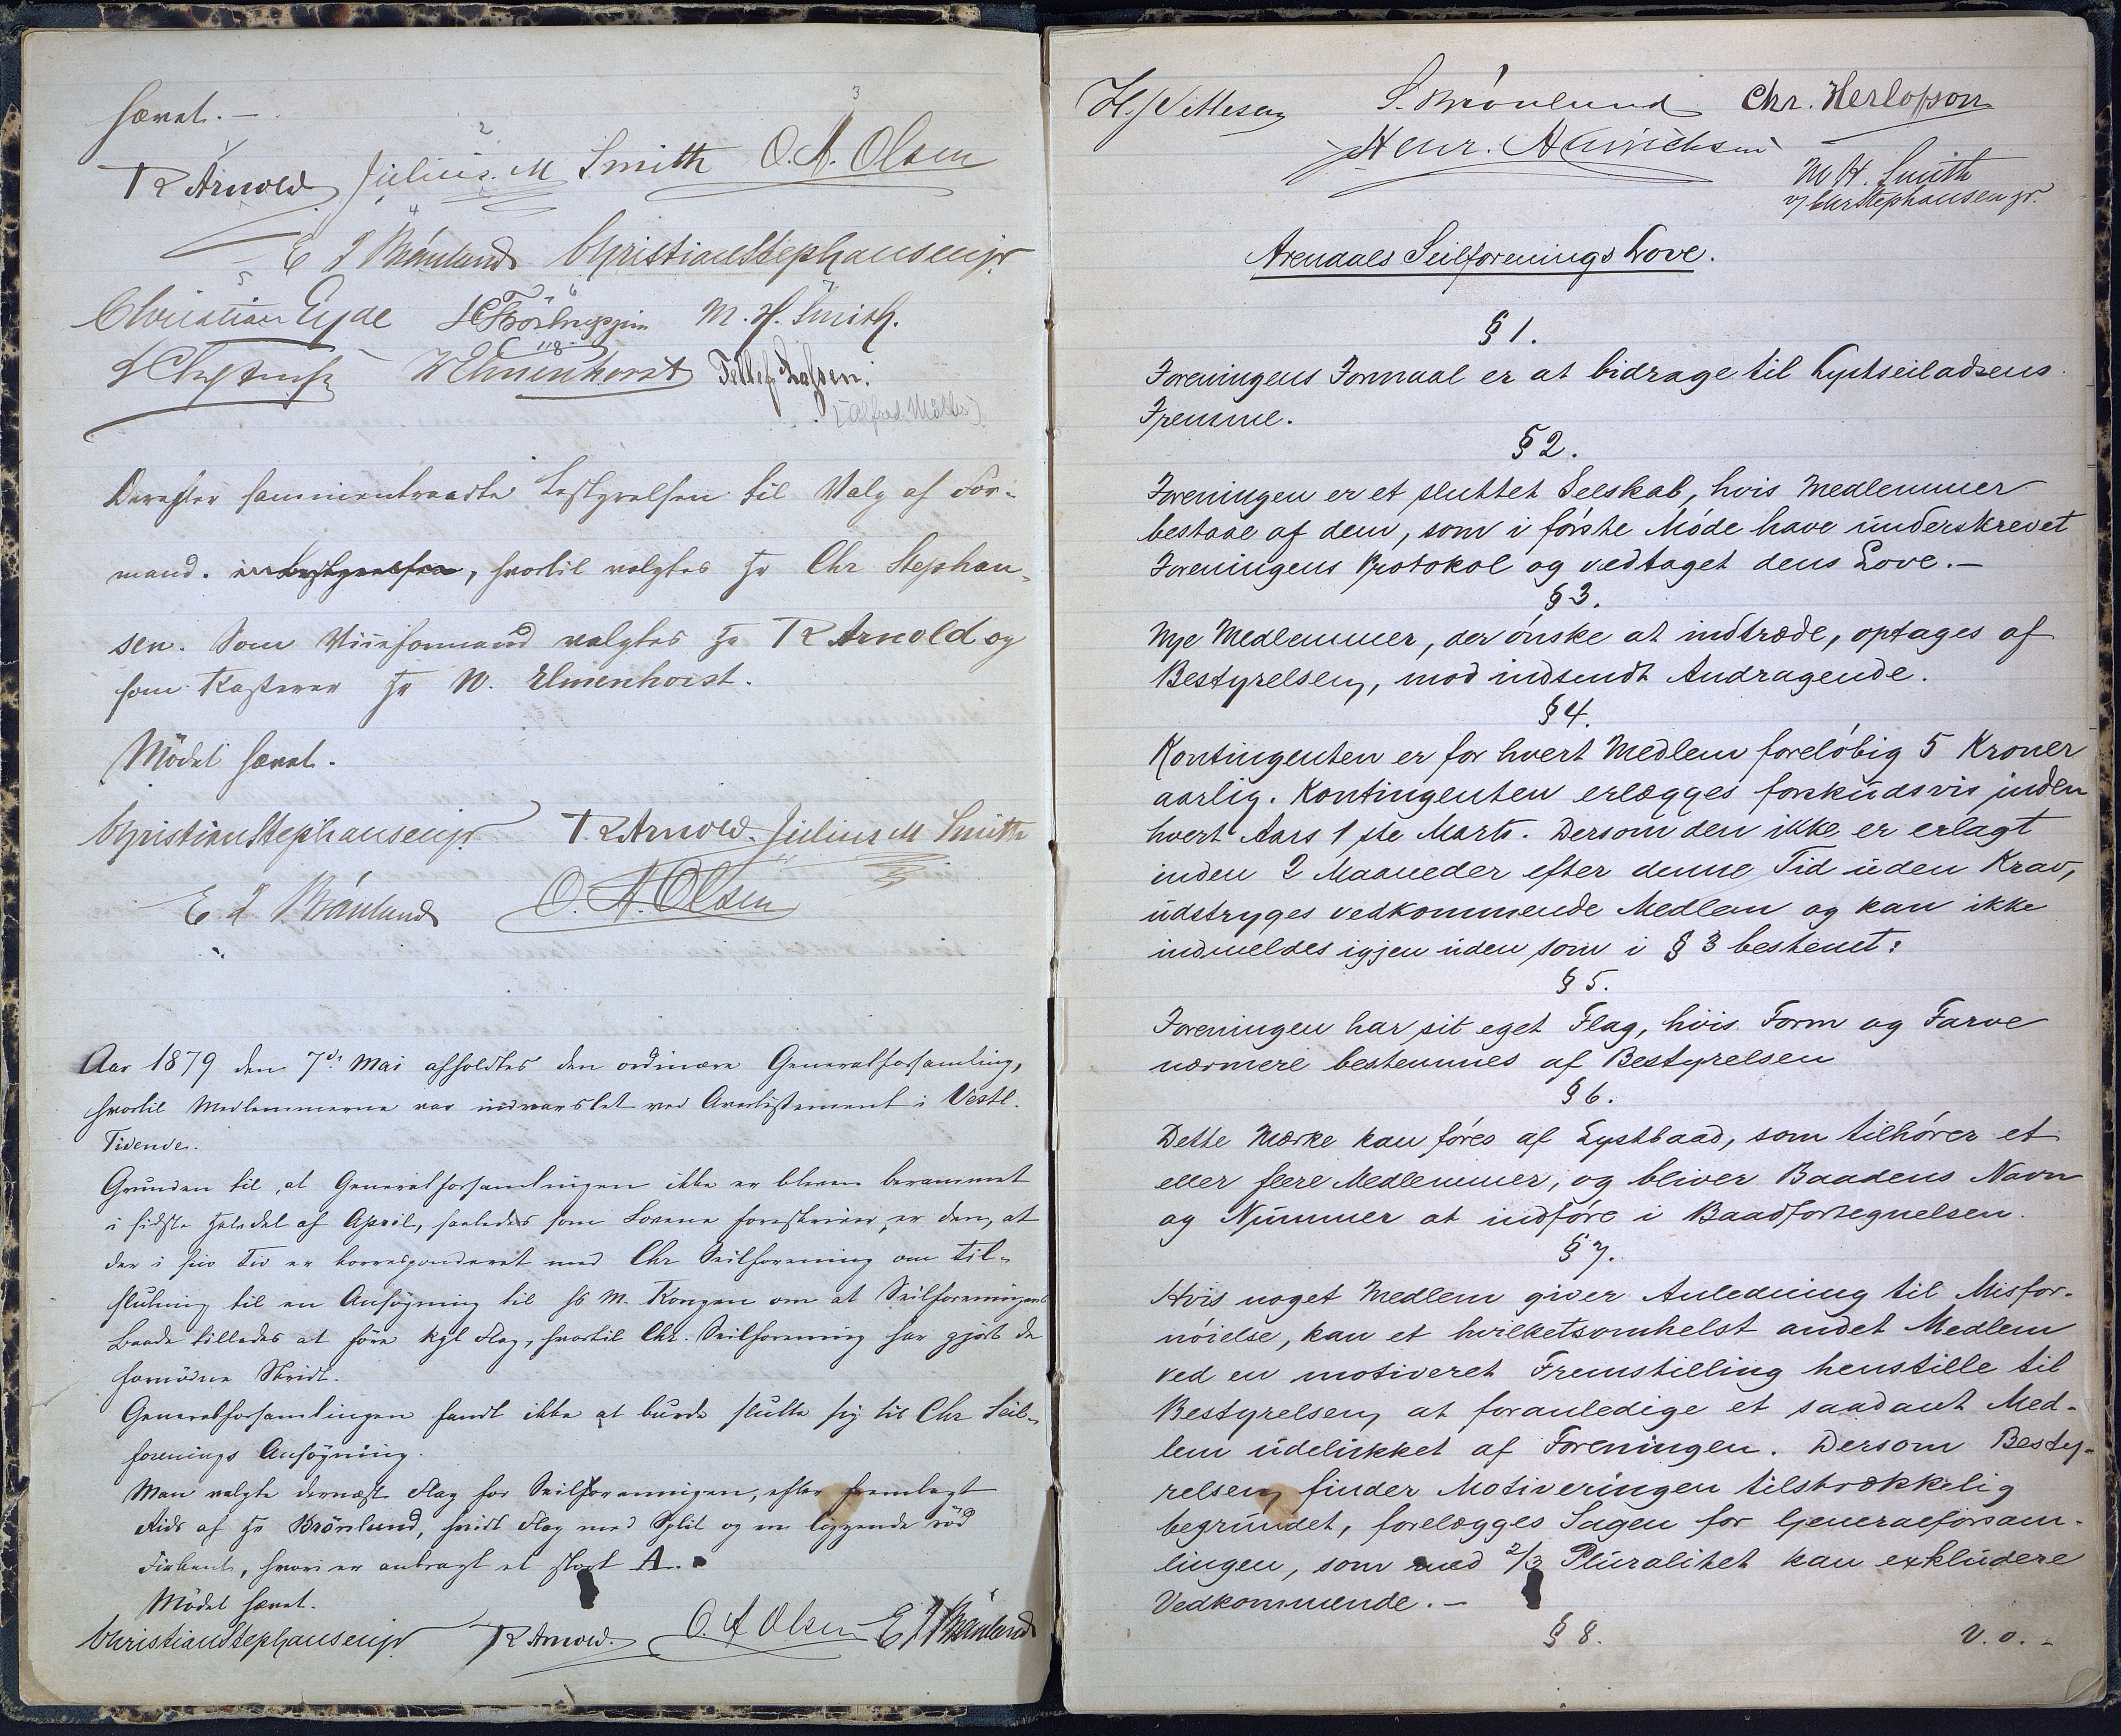 hævet. –
1 2 3
R Arnold Julius M Smith O. A. Olsen
4
E I Brönlund Christian Stephansen jr
5 6 7
Christian Eyde M. H. Smith.
8
W Elmenhorst Tellef Lassen.
(Alfred Möller)
Derefter sammentraadte Bestyrelsen til Valg af For-
mand. i Bestyrelsen, hvortil valgtes Hr Chr Stephan-
sen. Som Viceformand valgtes Hr R Arnold og
som Kasserer Hr W. Elmenhorst.
Mödet hævet.
Christian Stephansen jr R Arnold. Julius M Smith
E I Brönlund O. A. Olsen
Aar 1879 den 7de Mai afholdtes den ordinære Generalforsamling,
hvortil Medlemmerne var indvarslet ved Avertissement i Vestl.
Tidende.
Grunden til, at Generalforsamlingen ikke er bleven berammet
i sidste Halvdel af April, saaledes som Lovene foreskriver, er den, at
der i sin Tid er korresponderet med Chr Seilforening om Til-
slutning til en Ansögning til Hs M. Kongen om at Seilforeningens
Baade tillades at före kgl Flag, hvortil Chr. Seilforening har gjort de
fornödne Skridt.
Generalforsamlingen fandt ikke at burde slutte sig til Chr Seil-
forenings Ansögning.
Man valgte dernæst Flag for Seilforeningen, efter fremlagt
Rids af Hr Brönlund, hvidt Flag med Split og en liggende röd
Firkant, hvori er anbragt et stort A.
Mödet hævet.
Christian Stephansen jr R Arnold. O. A Olsen E I Brönlund
H. J Vettesen S. Brönlund Chr. Herlofson
Henr. Hinrichsen
M H. Smith
v/ Chr Stephansen jr.
Arendals Seilforenings Love.
§ 1.
Foreningens Formaal er at bidrage til Lystseiladsens
Fremme.
§ 2.
Foreningen er et sluttet Selskab, hvis Medlemmer
bestaae af dem, som i förste Möde have underskrevet
Foreningens Protokol og vedtaget dens Love. –
§ 3.
Nye Medlemmer, der önske at indtræde, optages af
Bestyrelsen, mod indsendt Andragende.
§ 4.
Kontingenten er for hvert Medlem forelöbig 5 Kroner
aarlig. Kontingenten erlægges forskudsvis inden
hvert Aars 1ste Marts. Dersom den ikke er erlagt
inden 2 Maaneder efter denne Tid uden Krav,
udstryges vedkommende Medlem og kan ikke
indmeldes igjen uden som i § 3 bestemt:
§ 5.
Foreningen har sit eget Flag, hvis Form og Farve
nærmere bestemmes af Bestyrelsen
§ 6.
Dette Mærke kan föres af Lystbaad, som tilhörer et
eller flere Medlemmer, og bliver Baadens Navn
og Nummer at indföre i Baadfortegnelsen.
§ 7.
Hvis noget Medlem giver Anledning til Misfor-
nöielse, kan et hvilketsomhelst andet Medlem
ved en motiveret Fremstilling henstille til
Bestyrelsen, at foranledige et saadant Med-
lem udelukket af Foreningen. Dersom Besty-
relsen finder Motiveringen tilstrækkelig
begrundet, forelægges Sagen for Generalforsam-
lingen, som med 2/3 Pluralitet kan exkludere
Vedkommende. –
§ 8. V. o. -